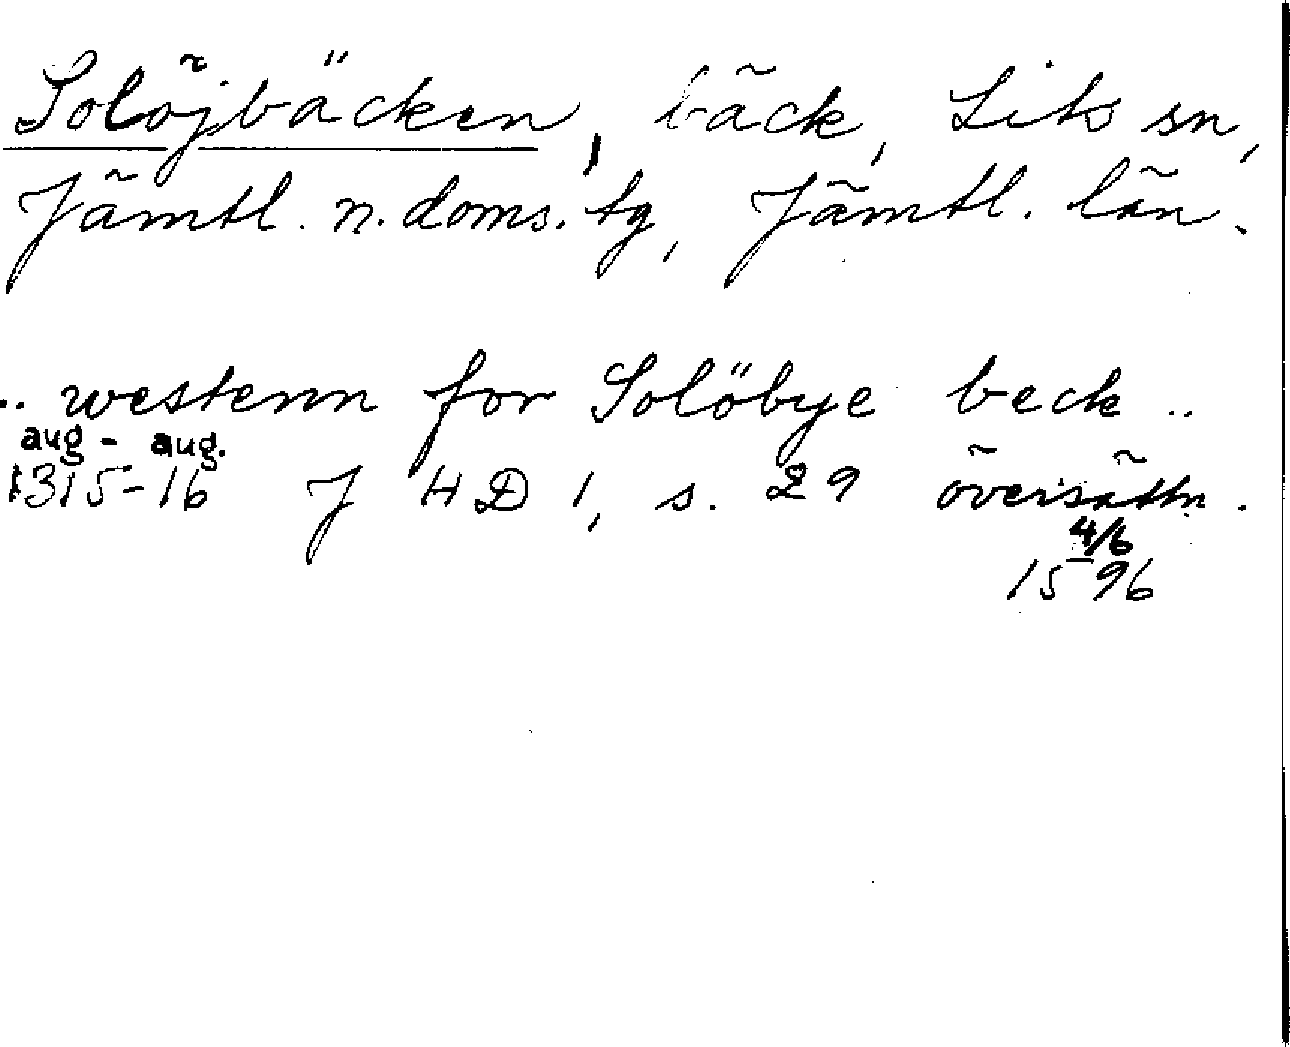 Solöjbäcken, bäck, Lits sn,
Jämtl. n. doms. tg, Jämtl. län.
.. westenn for Solöbye beck ..
aug - aug.
1315-16 J H D 1, s. 29 översättn.
4/6
1596